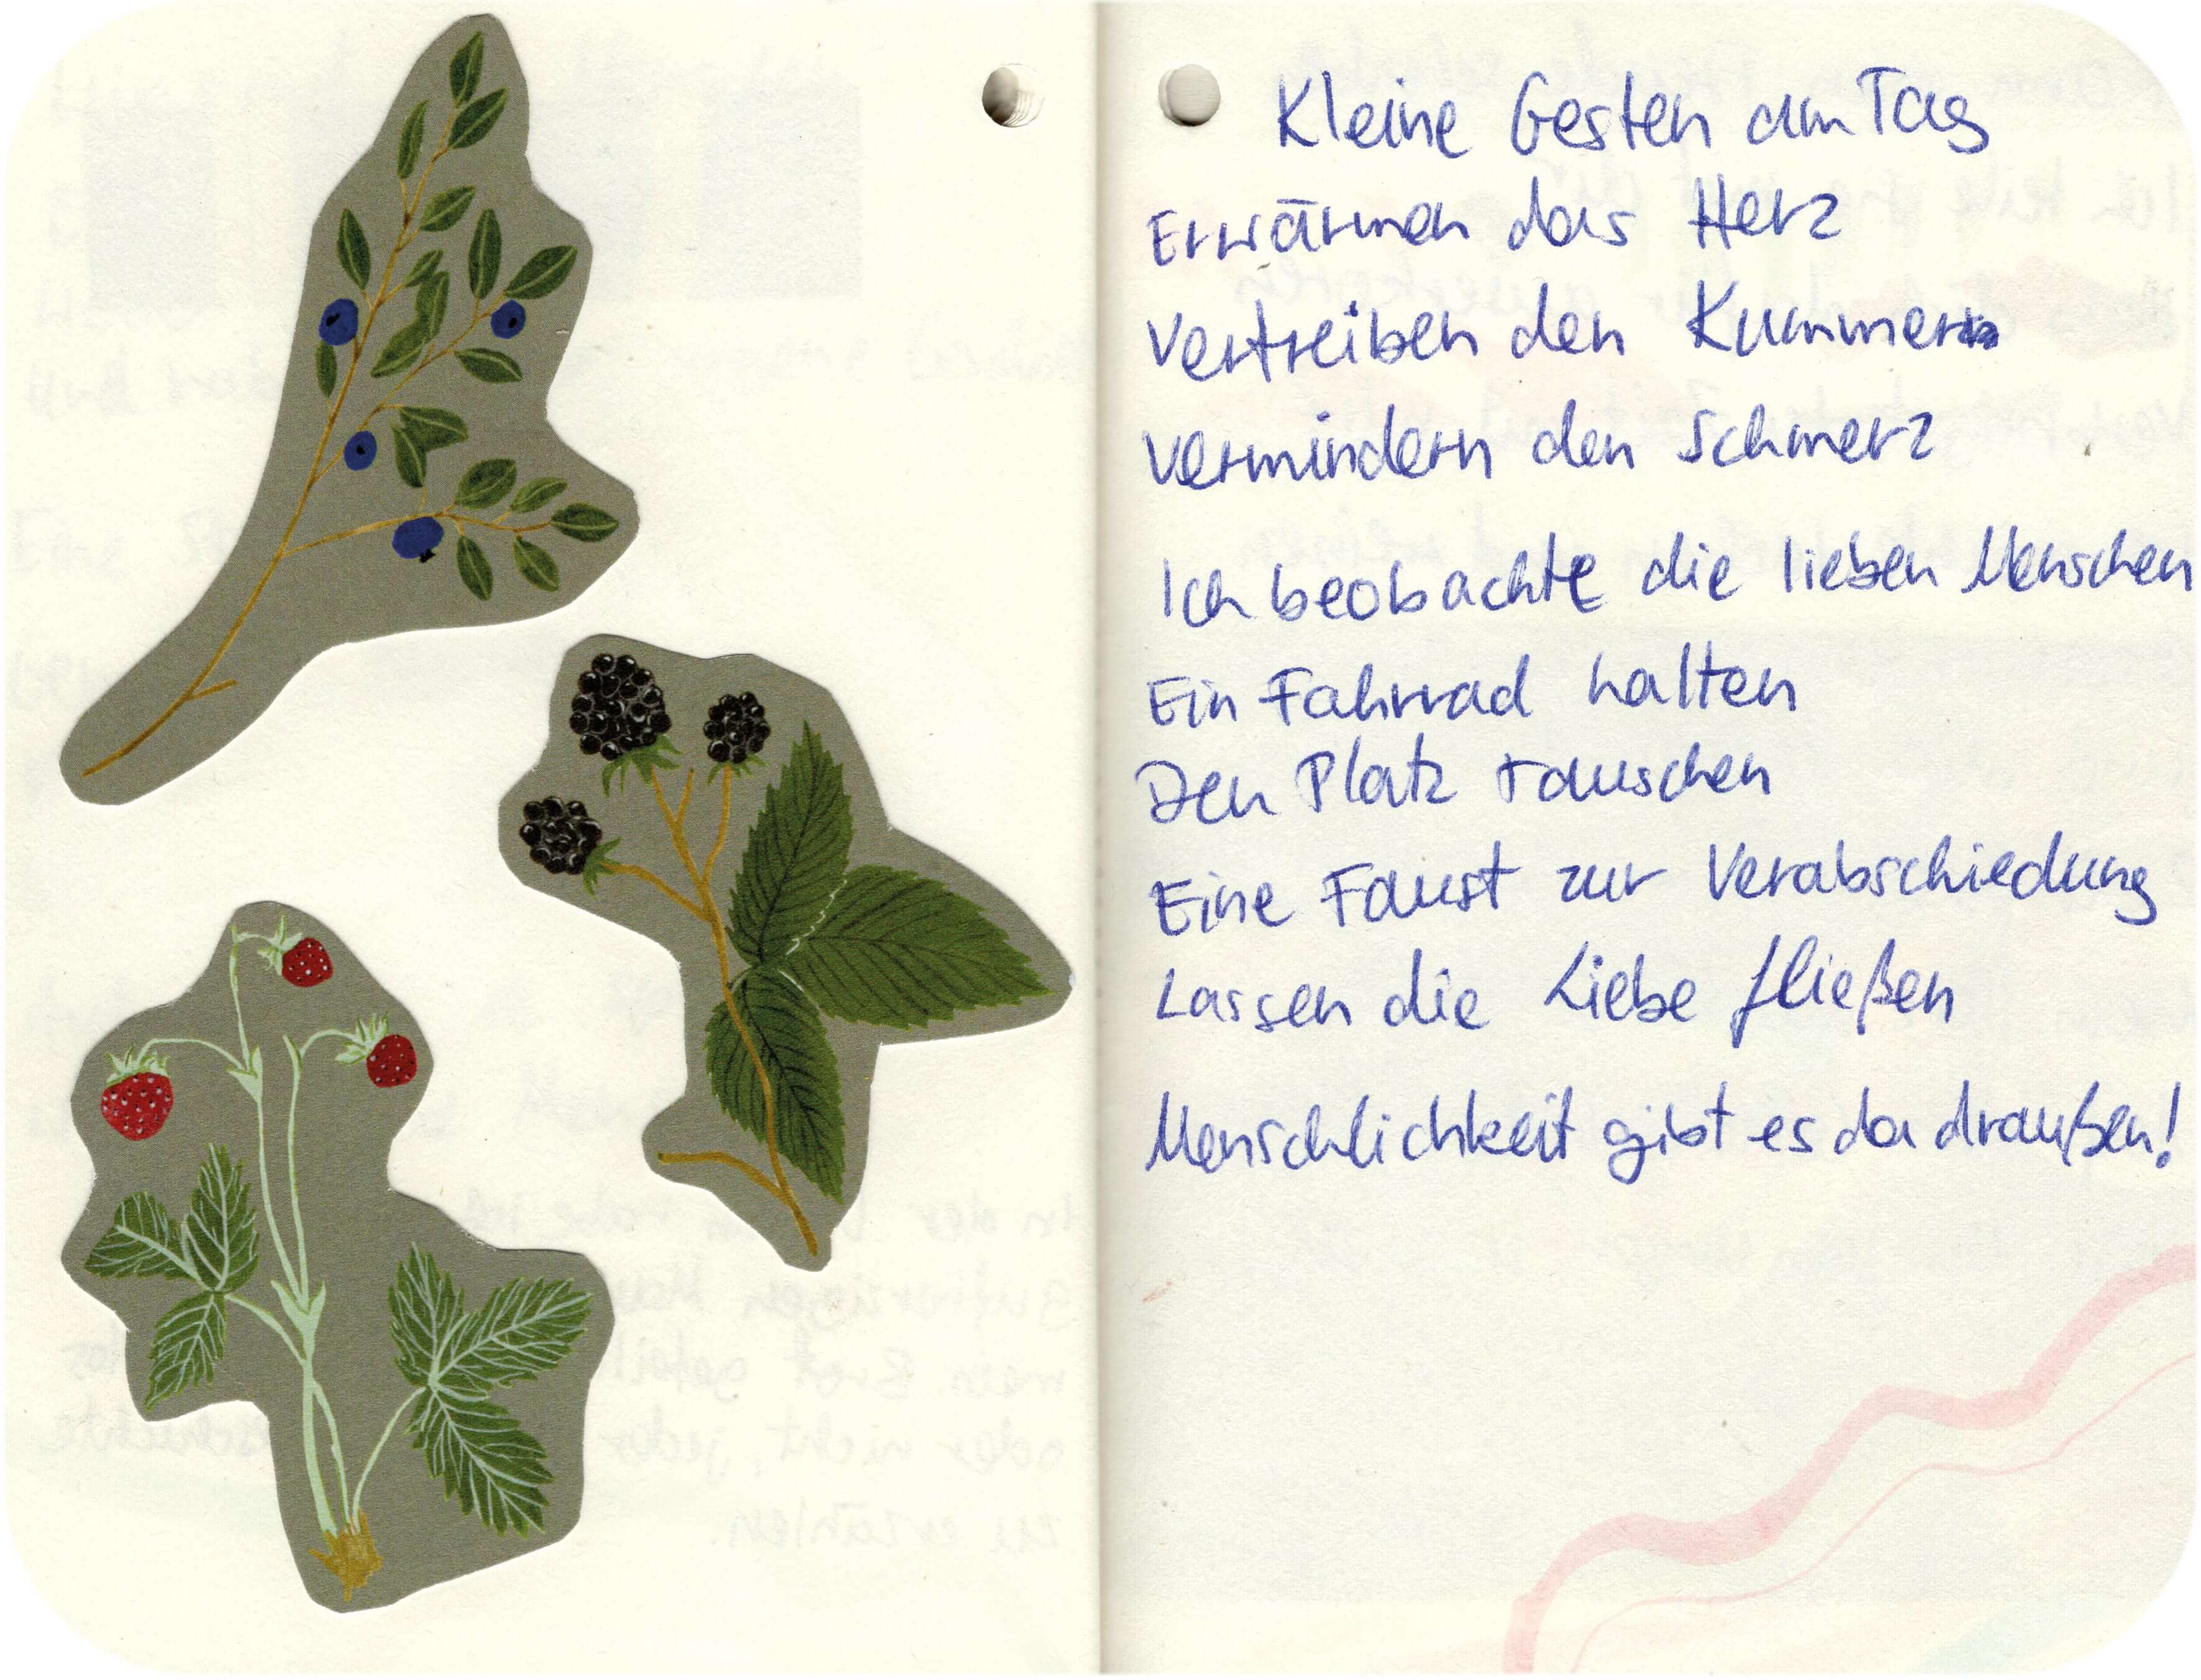 Kleine Gesten am Tag
Erwärmen das Herz
Vertreiben den Kummer
vermindern den Schmerz
Ich beobachte die lieben Menschen
Ein Fahrrad halten
Den Platz tauschen
Eine Faust zur Verabschiedung
Lassen die Liebe fließen
Menschlichkeit gibt es da draußen!